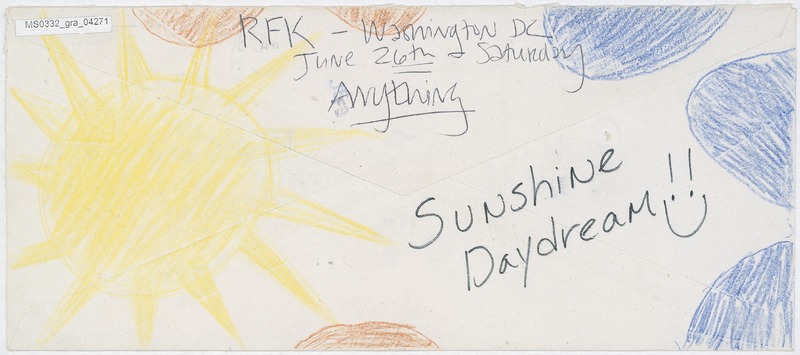 MS0332_gra_04271
RFK - Washington DC
June 26th Saturday
Anything
Sunshine
Daydream!!